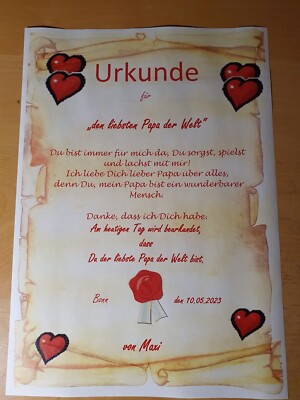 Urkunde
für
„den liebsten Papa der Welt"
Du bist immer für mich da, Du sorgst, spielst
und lachst mit mir!
Ich liebe Dich lieber Papa über alles,
denn Du, mein Papa bist ein wunderbarer
Mensch.
Danke, dass ich Dich habe.
Am heutigen Tag wird bearkundet,
dass
Du der liebste Papa der Welt bist.
Bonn den 10.05.2023
von Maxi